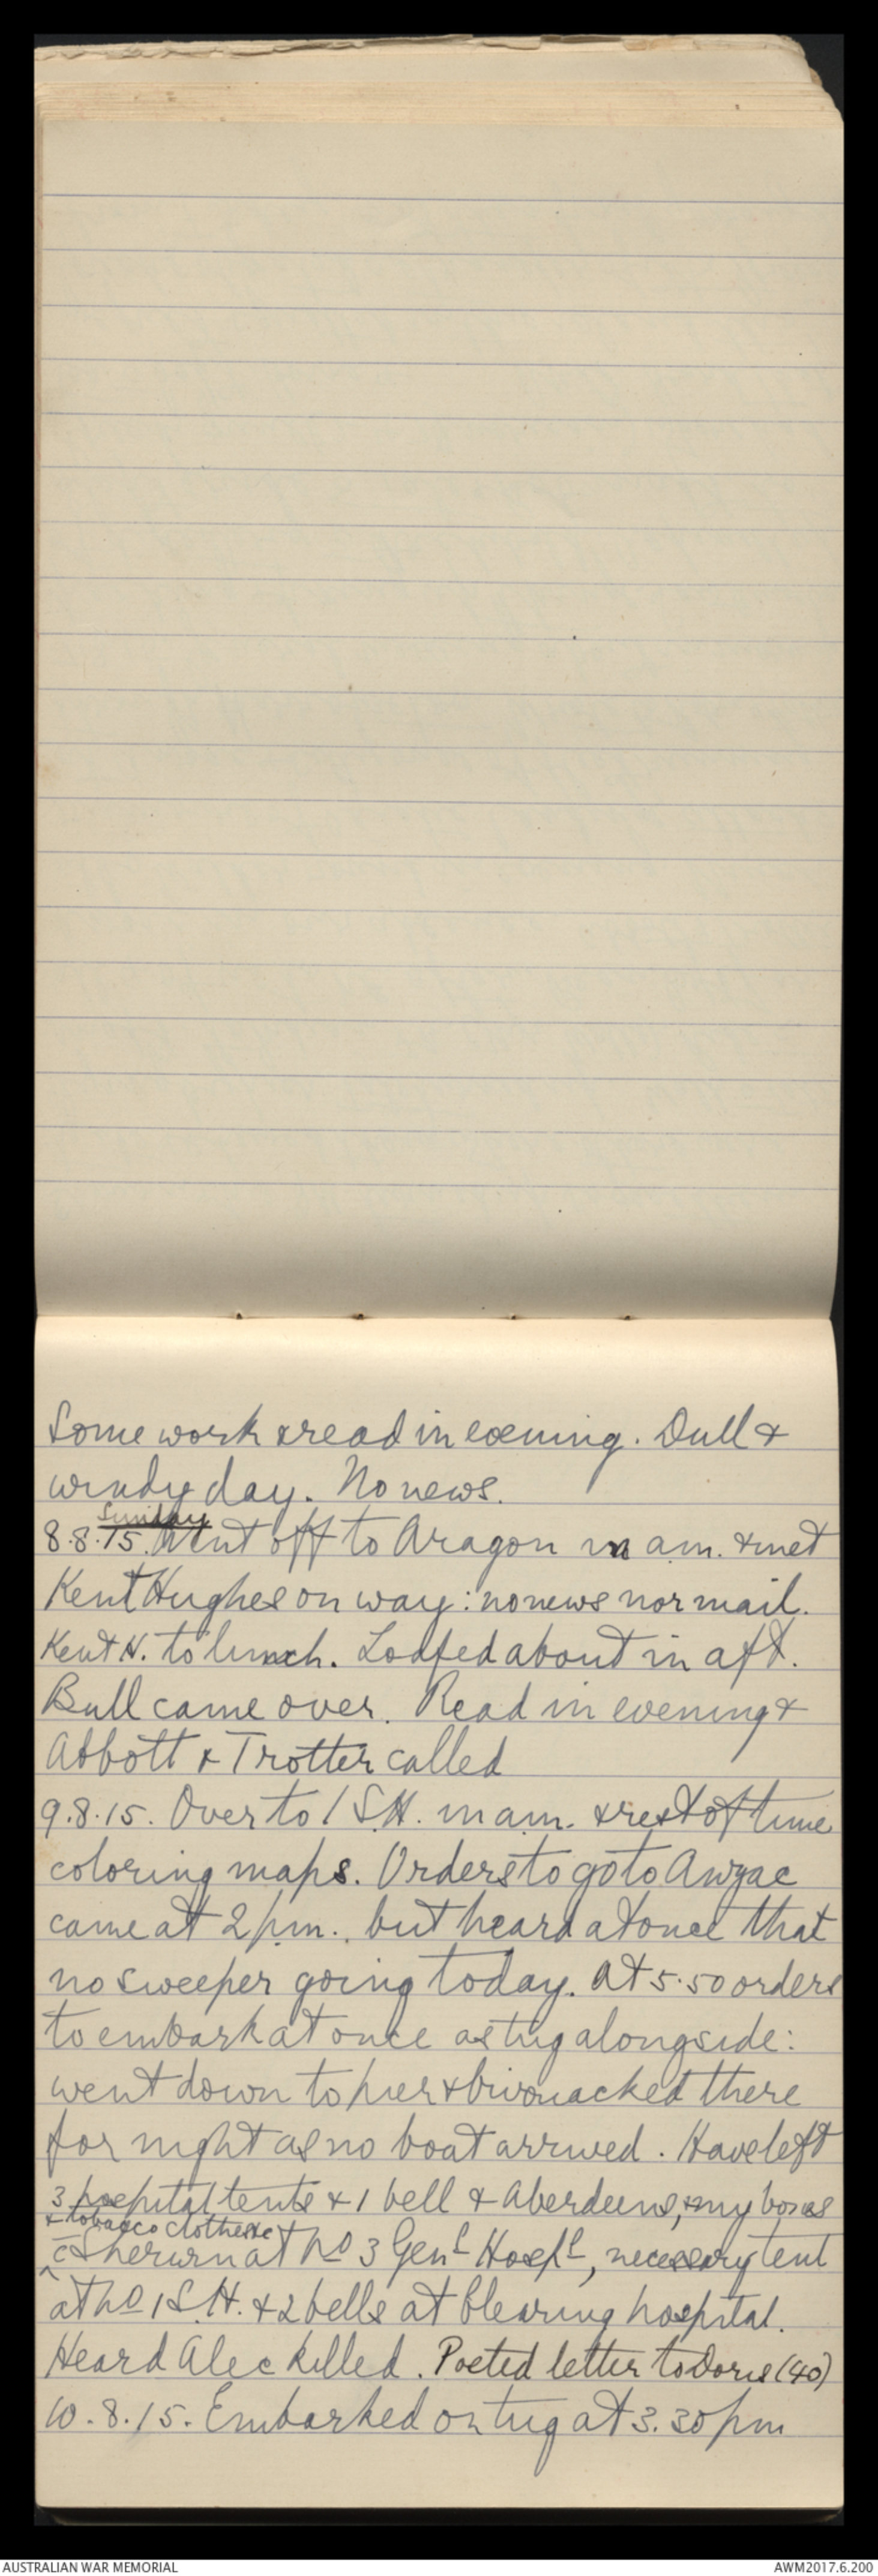 Some work & read in evening. Dull &
windy day. No news.
Sunday
8.8.15. Went off to Aragon in am. & met
Kent Hughes on way: no news nor mail.
Kent H. to lunch. Loafed about in aft.
Bull came over. Read in evening &
Abbott & Trotter called
9.8.15. Over to 1 S.H. in am. & rest of time
coloring maps. Orders to go to Anzac
came at 2 pm., but heard at once that
no sweeper going today. At 5.50 orders
to embark at once as tug alongside:
went down to pier & bivouacked there
for night as no boat arrived. Have left
3 hospital tents & 1 bell & Aberdeens, & my boxes
& tobacco clothes &c
c Sherwin at No 3 Genl Hospl, necessary tent
at No 1 S.H. & 2 bells at Clearing hospital.
Heard Alec killed. Posted letter to Doris (40)
10.8.15. Embarked on tug at 3.30 pm
AUSTRALIAN WAR MEMORIAL
AWM2017.6.200